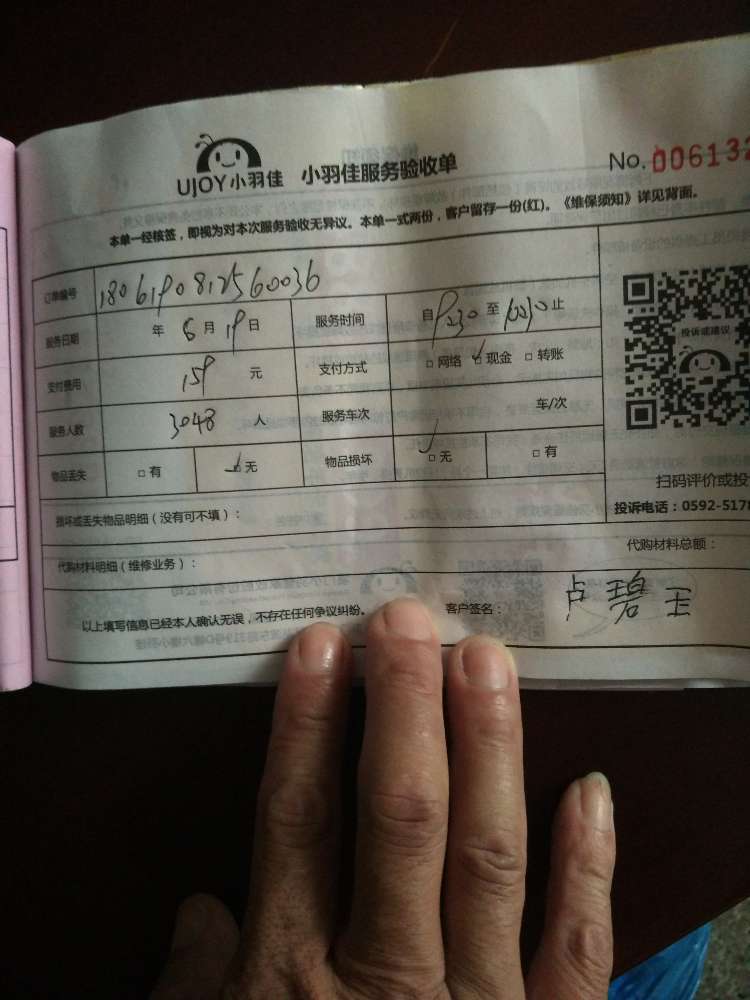 UJOY小羽佳 小羽佳服务验收单 No. 006132
本单一经核签，即视为对本次服务验收无异议。本单一式两份，客户留存一份(红)。《维保须知》详见背面。
订单编号 1806190812560036
服务日期 年 6 月 19 日 服务时间 自 0230 至 10230 止
支付费用 159 元 支付方式 □网络 ☑现金 □转账
服务人数 3048 人 服务车次 车/次
物品丢失 □有 ☑无 物品损坏 ☑无 □有
投诉或建议
扫码评价或投
投诉电话：0592-5178
损坏或丢失物品明细（没有可不填）：
代购材料明细（维修业务）： 代购材料总额：
以上填写信息已经本人确认无误，不存在任何争议纠纷。 客户签名： 卢碧玉